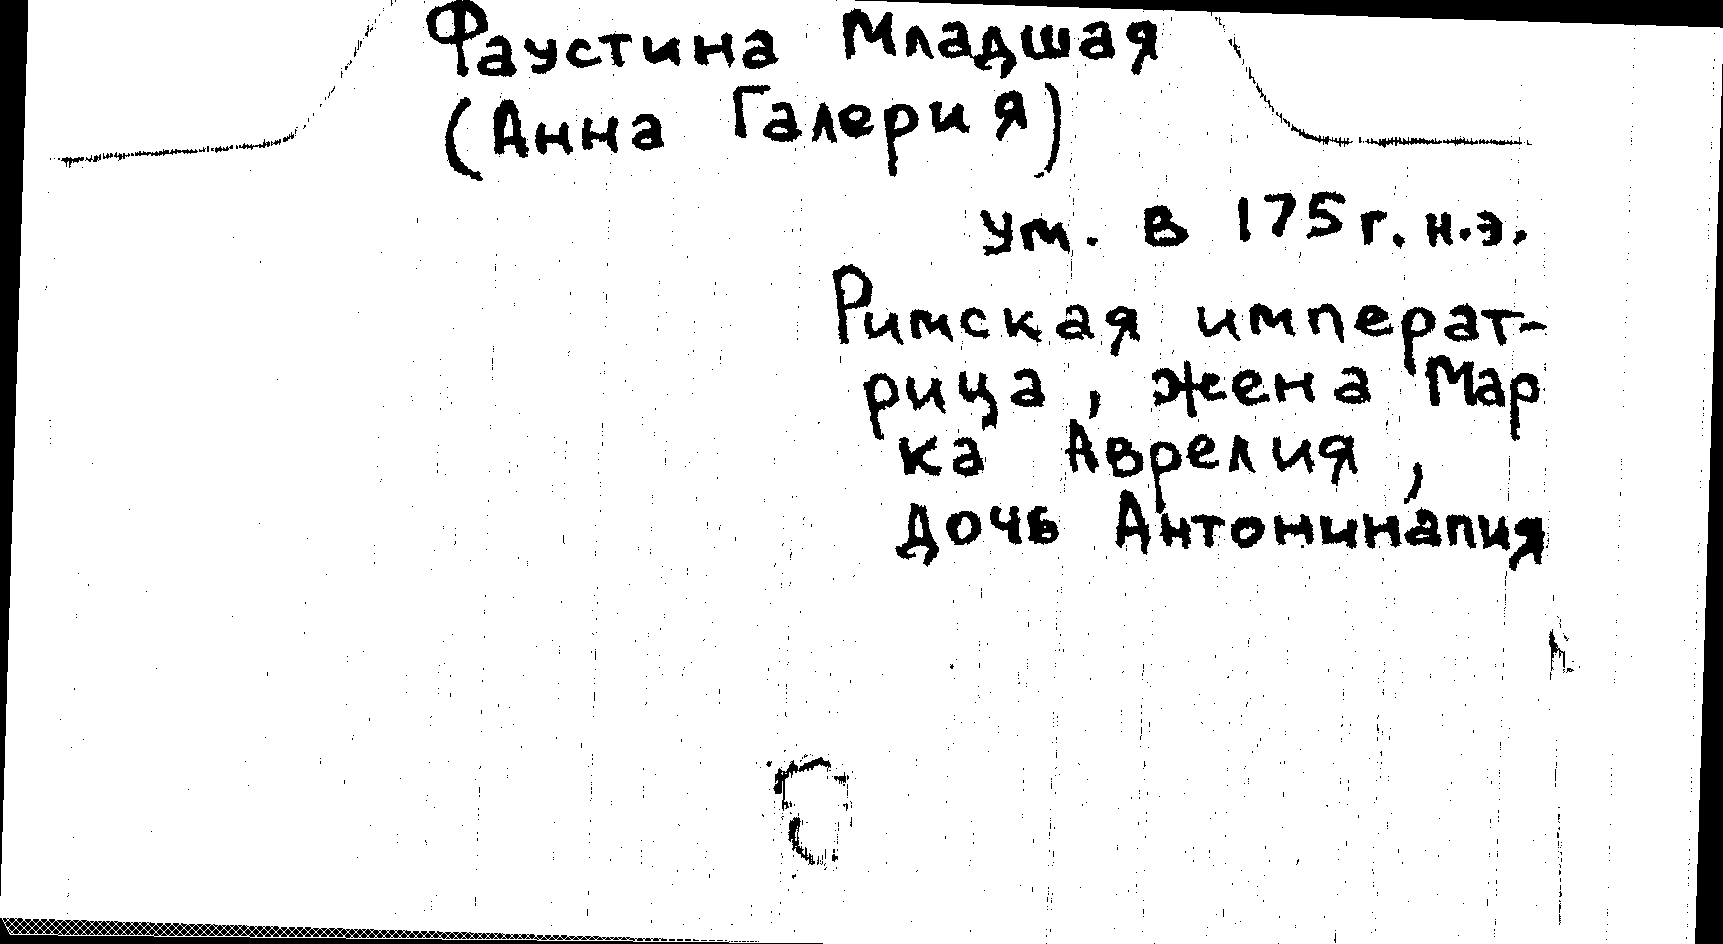 Фаустина Младшая
(Анна Галерия)
ум. в 175 г. н.э.
Римская императ-
рица, жена Мар
ка Аврелия,
дочь Антонинапия